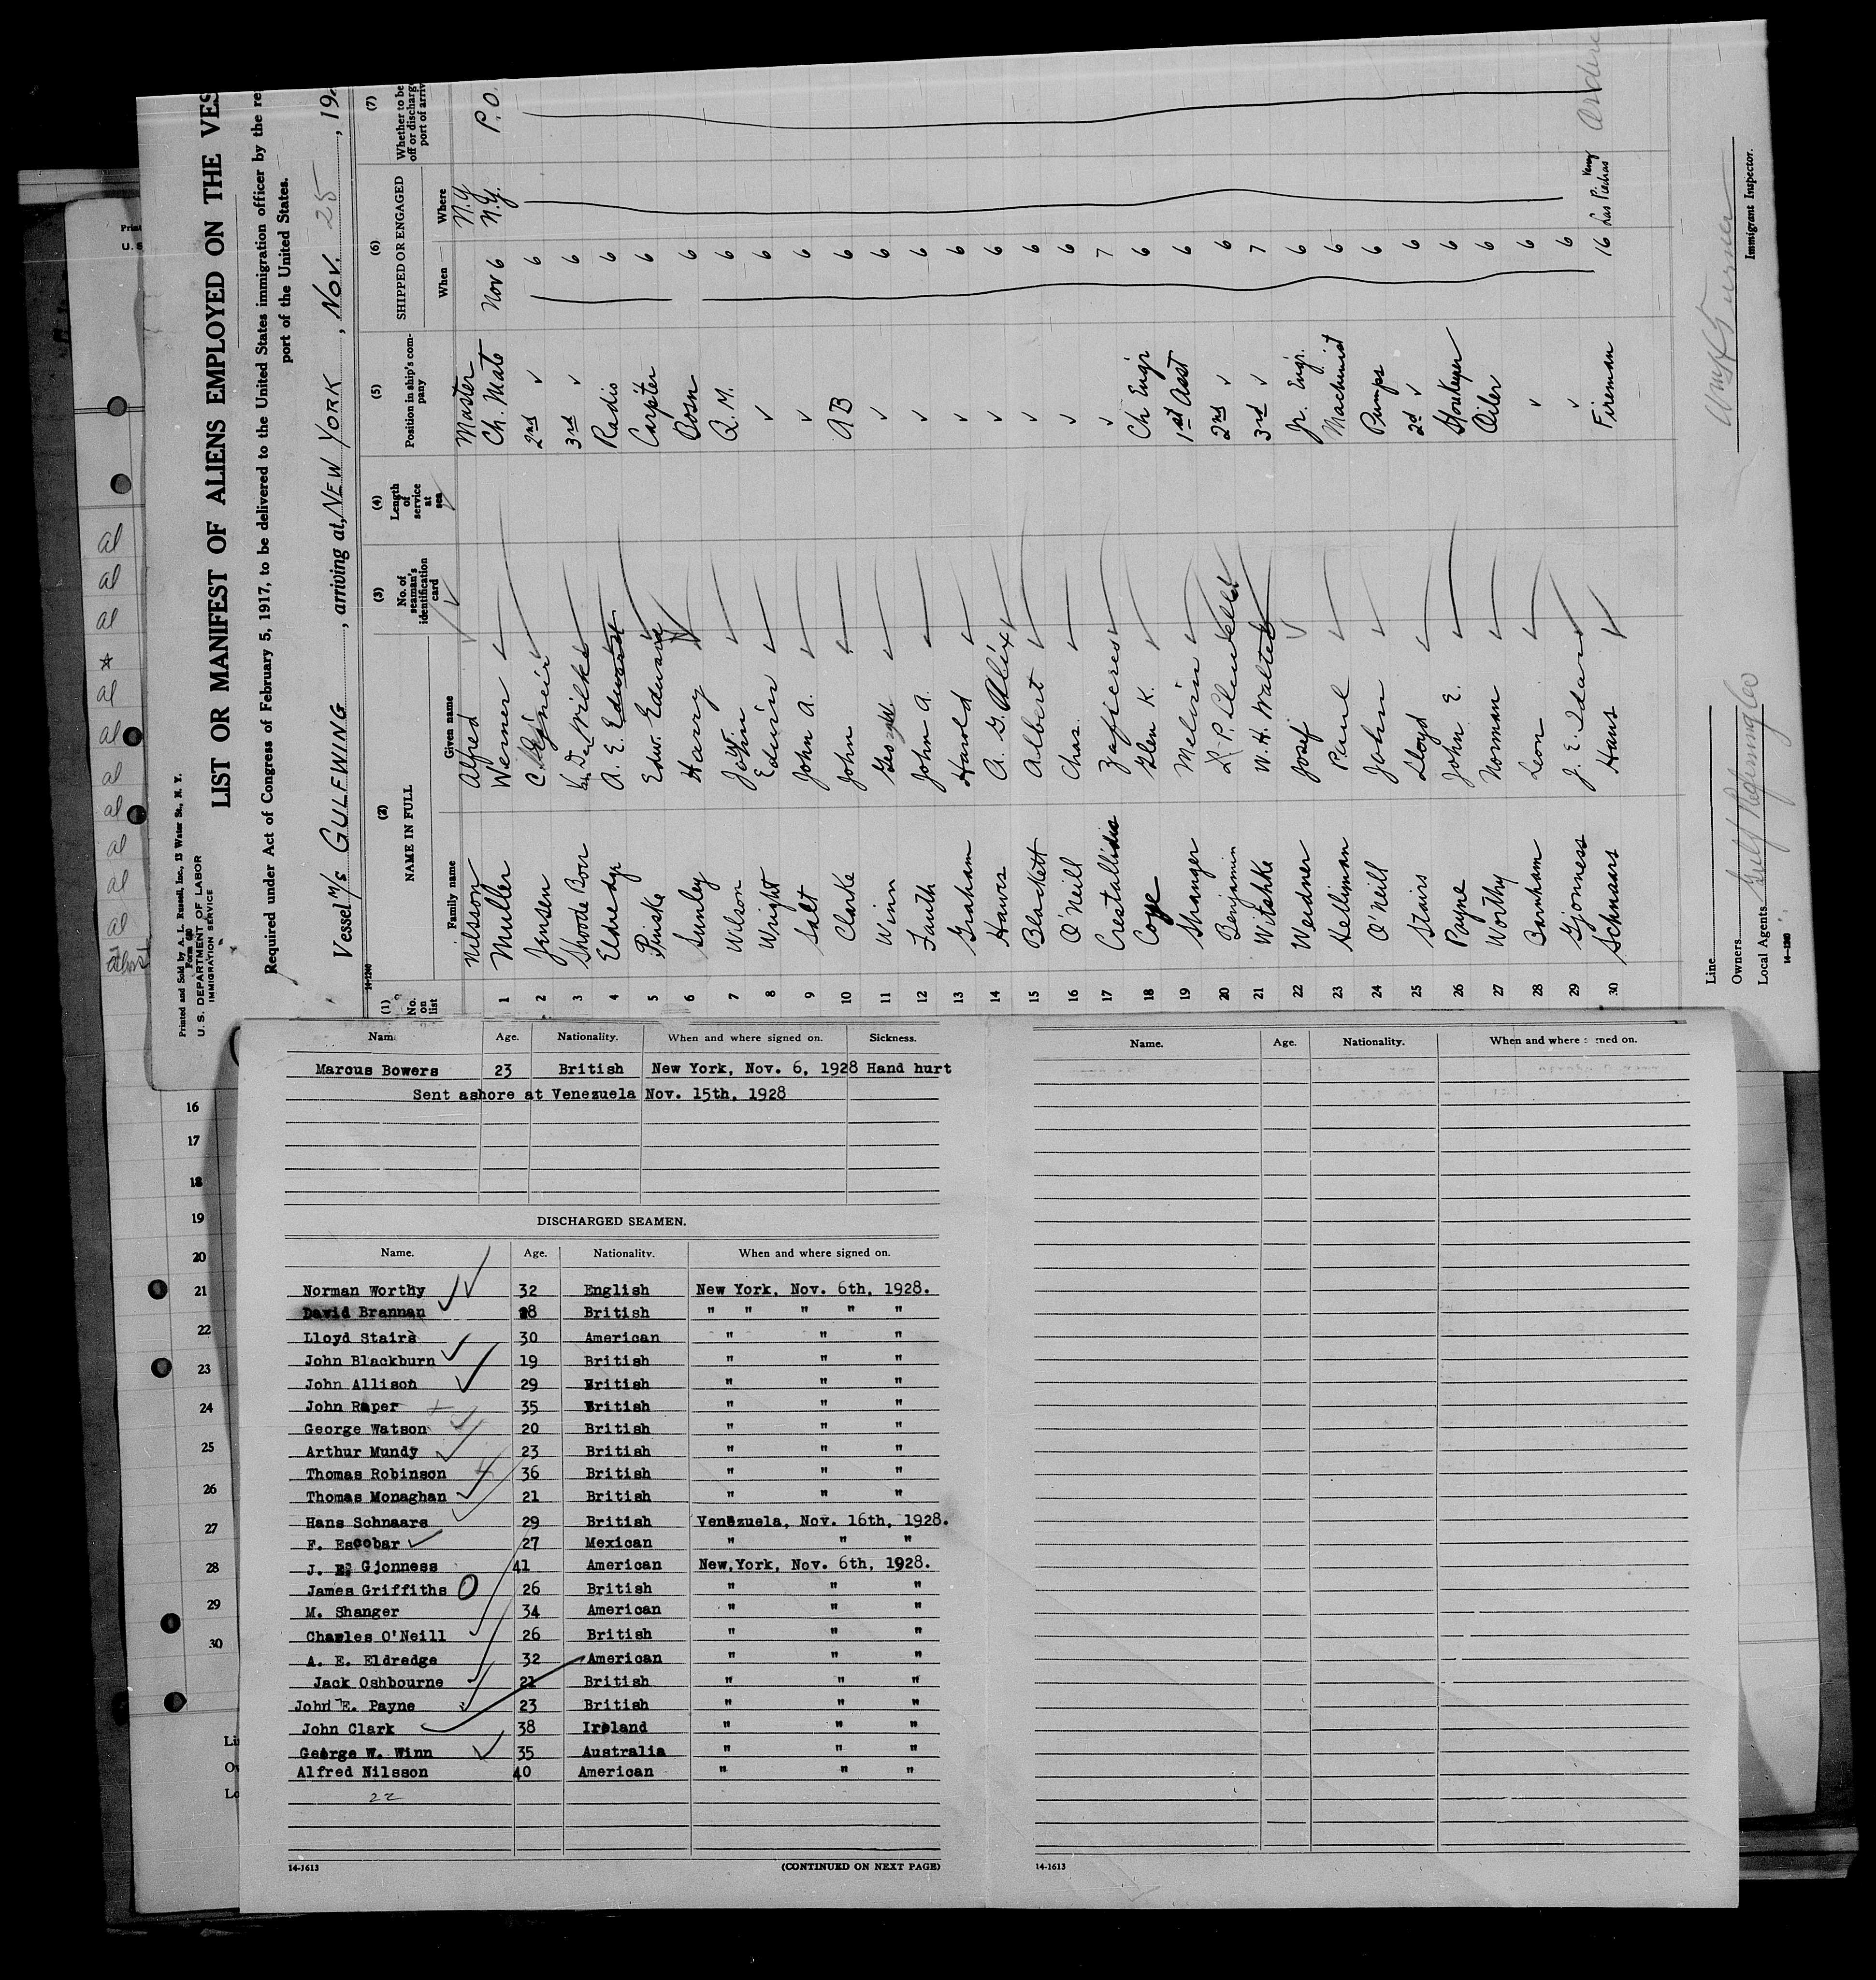 Printed and Sold by A. L. Russell, Inc., 13 Water St., N. Y.
Form 680
U. S. DEPARTMENT OF LABOR
IMMIGRATION SERVICE
LIST OR MANIFEST OF ALIENS EMPLOYED ON THE VES
Required under Act of Congress of February 5, 1917, to be delivered to the United States immigration officer by the re
port of the United States.
Vessel M/S GULFWING, arriving at, NEW YORK, Nov. 25, 192
14-1240
(1) (2) (3) (4) (5) (6) (7)
No. on list NAME IN FULL No. of seaman's identification card Length of service at sea Position in ship's company SHIPPED OR ENGAGED Whether to be off or discharge port of arriv
Family name Given name When Where
Nilsson Alfred Master N.Y
1 Muller Werner Ch. Mate Nov 6 N.Y. P.O.
2 Jensen 2nd ✓ 6
3 3rd ✓ 6
4 Eldredge A. E. Radio 6
5 Pinske Edw. Edward Carpiter 6
6 Sunley Harry Bosn 6
7 Wilson John Q. M. 6
8 Wright Edwin ✓ 6
9 Salt John A. ✓ 6
10 Clarke John AB 6
11 Winn Geo ✓ 6
12 Fauth John A. ✓ 6
13 Graham Harold ✓ 6
14 Hawes A. G. Alix ✓ 6
15 Blackett Albert ✓ 6
16 O'Neill Chas. ✓ 6
17 Crestallidis Zafieres ✓ 7
18 Coye Glen K. Ch Engr 6
19 Shanger Melvin 1st Asst 6
20 Benjamin 2nd ✓ 6
21 Witshke W. H. Walter 3rd ✓ 7
22 Weidner Josif Jr. Engr. 6
23 Helliman Paul Machinist 6
24 O'neill John Pumps 6
25 Stairs Lloyd 2d ✓ 6
26 Payne John E. Storekeeper 6
27 Worthy Norman Oiler 6
28 Barnham Leon ✓ 6
29 Gjonness J. E. ✓ 6
30 Schnaars Hans Fireman 16 Las Piedras Venez
Line
Owners Gulf Refining Co
Local Agents
14-1240
Immigrant Inspector.
Print
U. S
al
al
al
*
al
al
al
al
al
al
al
16
17
18
19
20
21
22
23
24
25
26
27
28
29
30
Li
Ow
Lo
Nam Age. Nationality. When and where signed on. Sickness.
Marcus Bowers 23 British New York, Nov. 6, 1928 Hand hurt
Sent ashore at Venezuela Nov. 15th, 1928
DISCHARGED SEAMEN.
Name. Age. Nationality. When and where signed on.
Norman Worthy 32 English New York, Nov. 6th, 1928.
David Brannan 28 British " " " " "
Lloyd Stairs 30 American " " "
John Blackburn 19 British " " "
John Allison 29 British " " "
John Raper 35 British " " "
George Watson 20 British " " "
Arthur Mundy 23 British " " "
Thomas Robinson 36 British " " "
Thomas Monaghan 21 British " " "
Hans Schnaars 29 British Venezuela, Nov. 16th, 1928.
F. Escobar 27 Mexican " " "
J. E. Gjonness 41 American New,York, Nov. 6th, 1928.
James Griffiths 26 British " " "
M. Shanger 34 American " " "
Charles O'Neill 26 British " " "
A. E. Eldredge 32 American " " "
Jack Oshbourne 21 British " " "
John E. Payne 23 British " " "
John Clark 38 Ireland " " "
George W. Winn 35 Australia " " "
Alfred Nilsson 40 American " " "
22
14-1613 (CONTINUED ON NEXT PAGE)
Name. Age. Nationality. When and where ned on.
14-1613